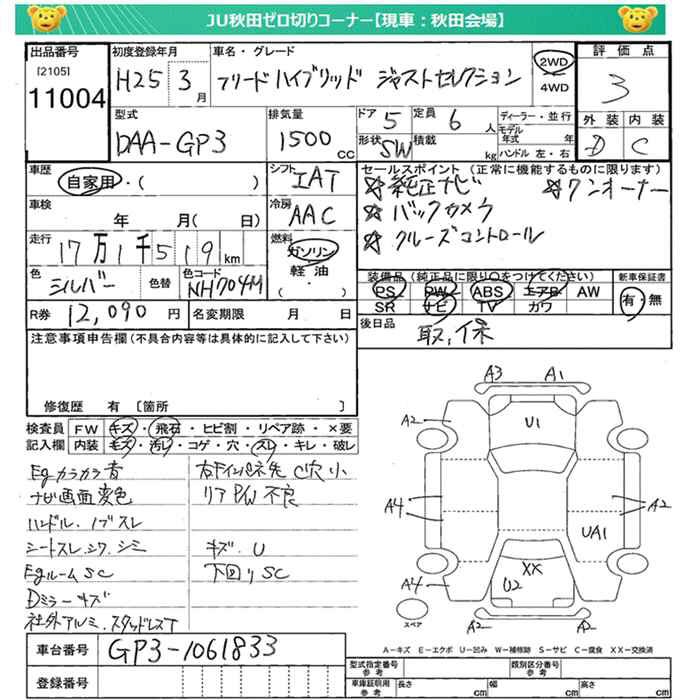 JU秋田ゼロ切りコーナー【現車：秋田会場】
出品番号
[2105]
11004
初度登録年月
H25 3月
車名・グレード
フリードハイブリッド ジャストセレクション
2WD
4WD
評価点
3
外装 内装
D C
型式
DAA-GP3
排気量
1500 CC
ドア 5
定員 6人
形状 SW
積載 kg
ディーラー・並行
モデル年式 年
ハンドル 左・右
車歴
自家用・( )
シフト
IAT
セールスポイント (正常に機能するものに限ります)
☆純正ナビ ☆ワンオーナー
☆バックカメラ
☆クルーズコントロール
車検
年 月( 日)
冷房
AAC
走行
17万1千519km
燃料
ガソリン
軽油
・( )
色
シルバー
色替
色コード
NH704M
装備品 (純正品に限り○をつけてください)
PS PW ABS エアB AW
SR ナビ TV カワ
新車保証書
有・無
R券 12,090円
名変期限 月 日
後日品
取,保
注意事項申告欄(不具合内容等は具体的に記入して下さい)
修復歴 有 [箇所 ]
検査員記入欄
FW キズ・飛石・ヒビ割・リペア跡・×要
内装 キズ・汚レ・コゲ・穴・スレ・キレ・破レ
Egカラカラ音
ナビ画面変色
ハンドル、ノブスレ
シートスレ、シワ、シミ
EgルームSC
Dミラーキズ
社外アルミ、スタッドレスT
C穴小
リアP/W不良
キズ、U
下回りSC
A3 A1
A2 U1
A4 A2
UA1
XX
A4 U2
A2 A2
スペア
A−キズ E−エクボ U−凹み W−補修跡 S−サビ C−腐食 XX−交換済
車台番号
GP3-1061833
登録番号
型式指定番号
類別区分番号
車庫証明用参考
長さ cm
幅 cm
高さ cm